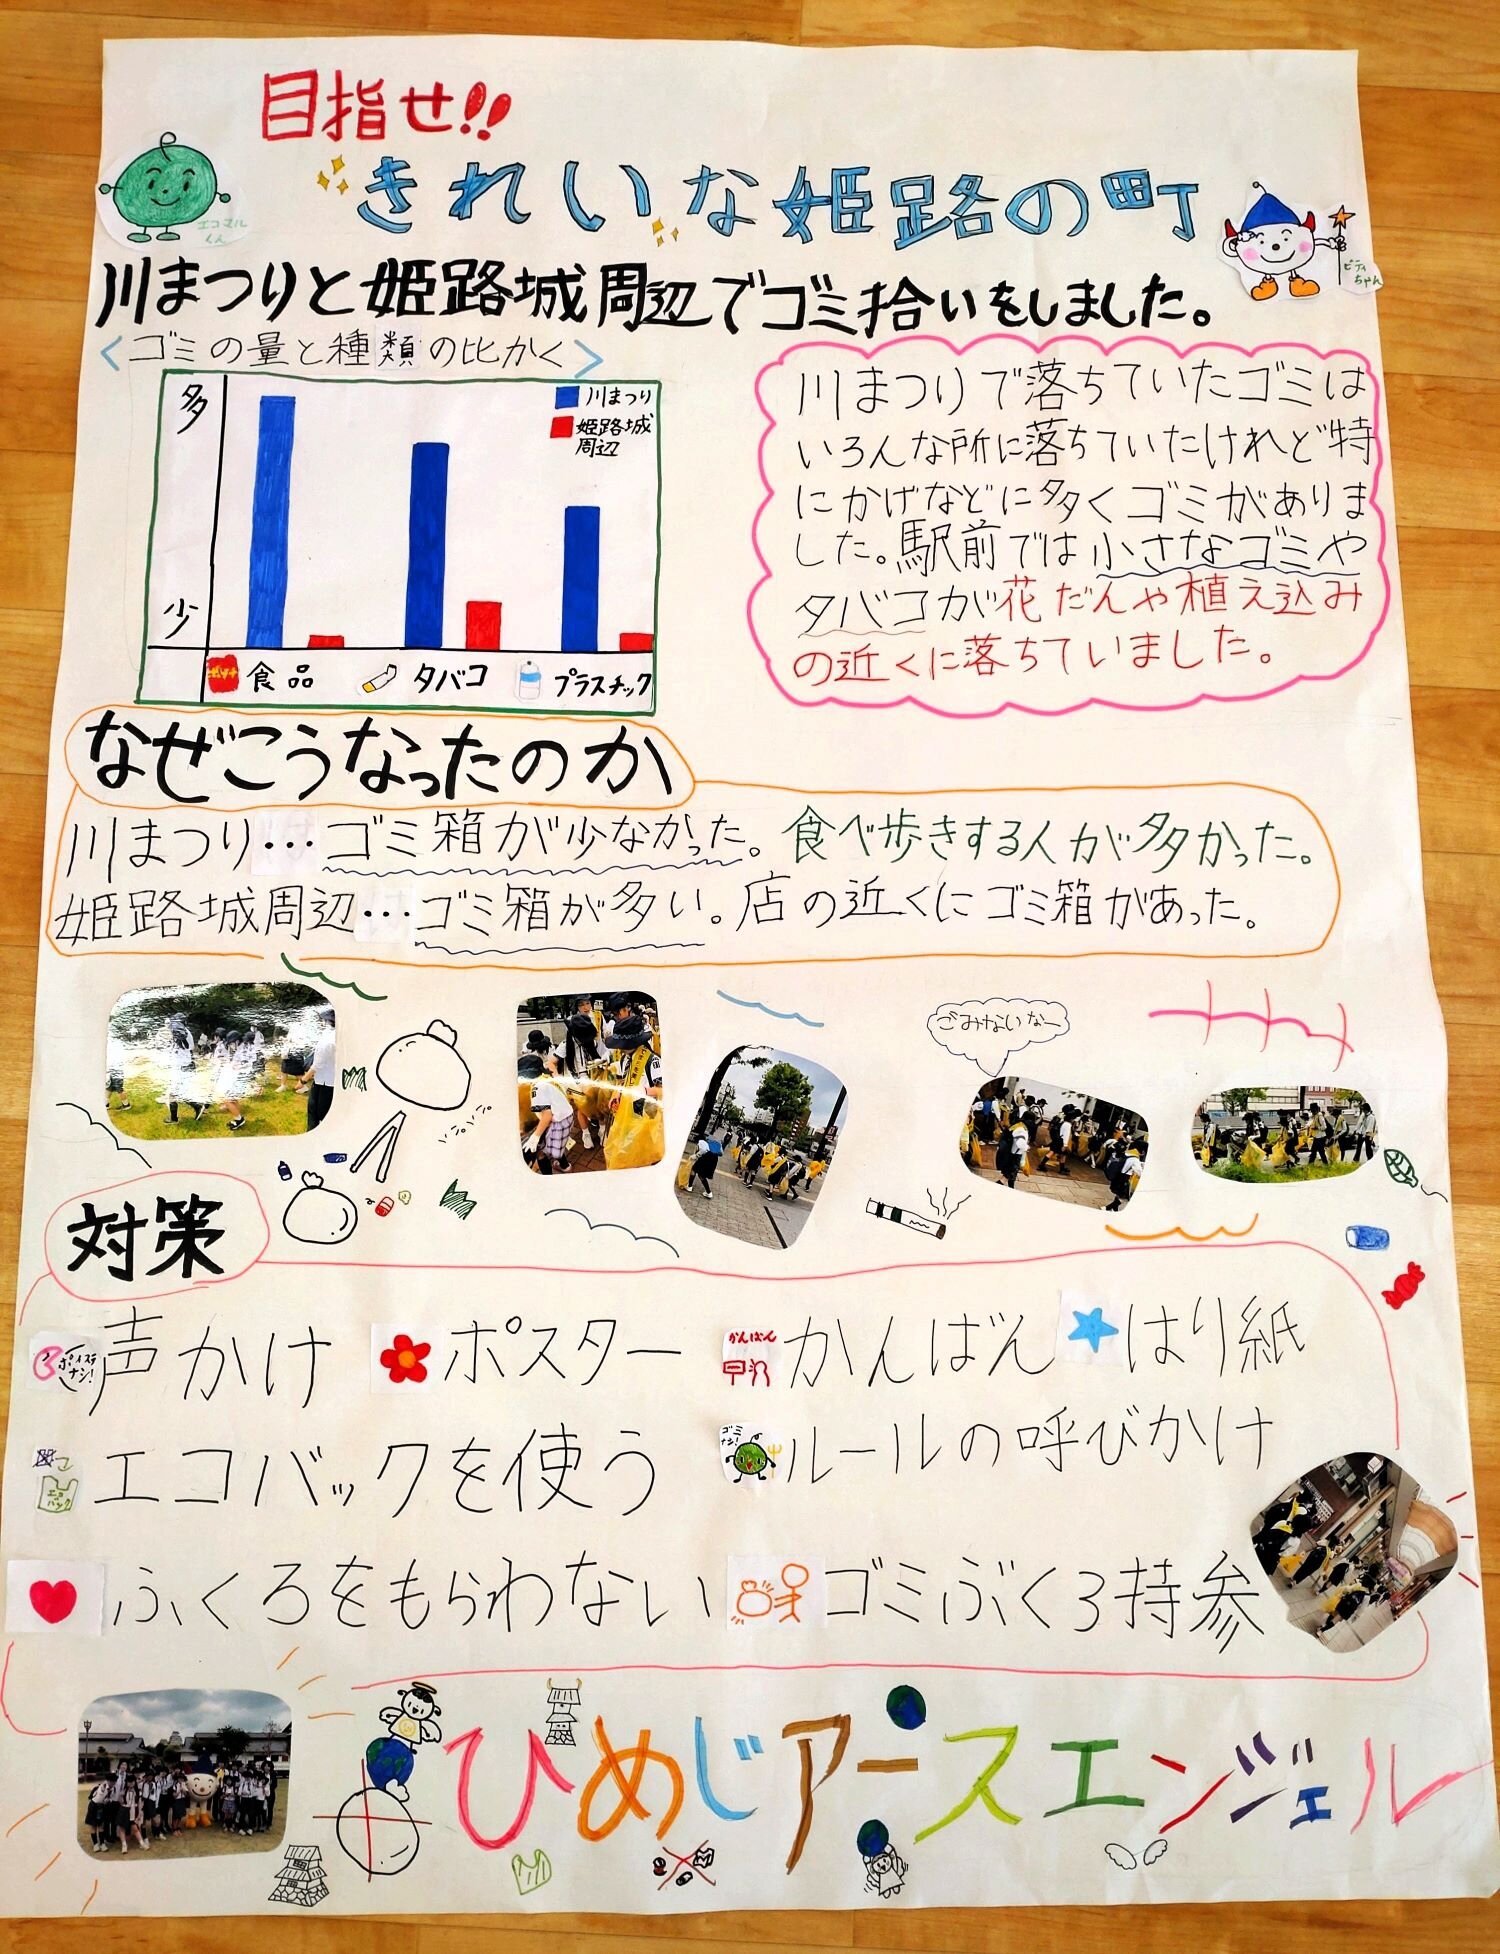 目指せ!!
きれいな姫路の町
エコマル
くん
ピティ
ちゃん
川まつりと姫路城周辺でゴミ拾いをしました。
〈ゴミの量と種類の比かく〉
多
少
川まつり
姫路城
周辺
食品
タバコ
プラスチック
川まつりで落ちていたゴミは
いろんな所に落ちていたけれど特
にかげなどに多くゴミがありま
した。駅前では小さなゴミや
タバコが花だんや植え込み
の近くに落ちていました。
なぜこうなったのか
川まつり…ゴミ箱が少なかった。食べ歩きする人が多かった。
姫路城周辺…ゴミ箱が多い。店の近くにゴミ箱があった。
ごみないなー
対策
ポイステ
ナシ!
声かけ
ポスター
かんばん
かんばん
はり紙
エコ
バック
エコバックを使う
ゴミ
ナシ!
ルールの呼びかけ
ふくろをもらわない
ゴミぶくろ持参
ひめじアースエンジェル